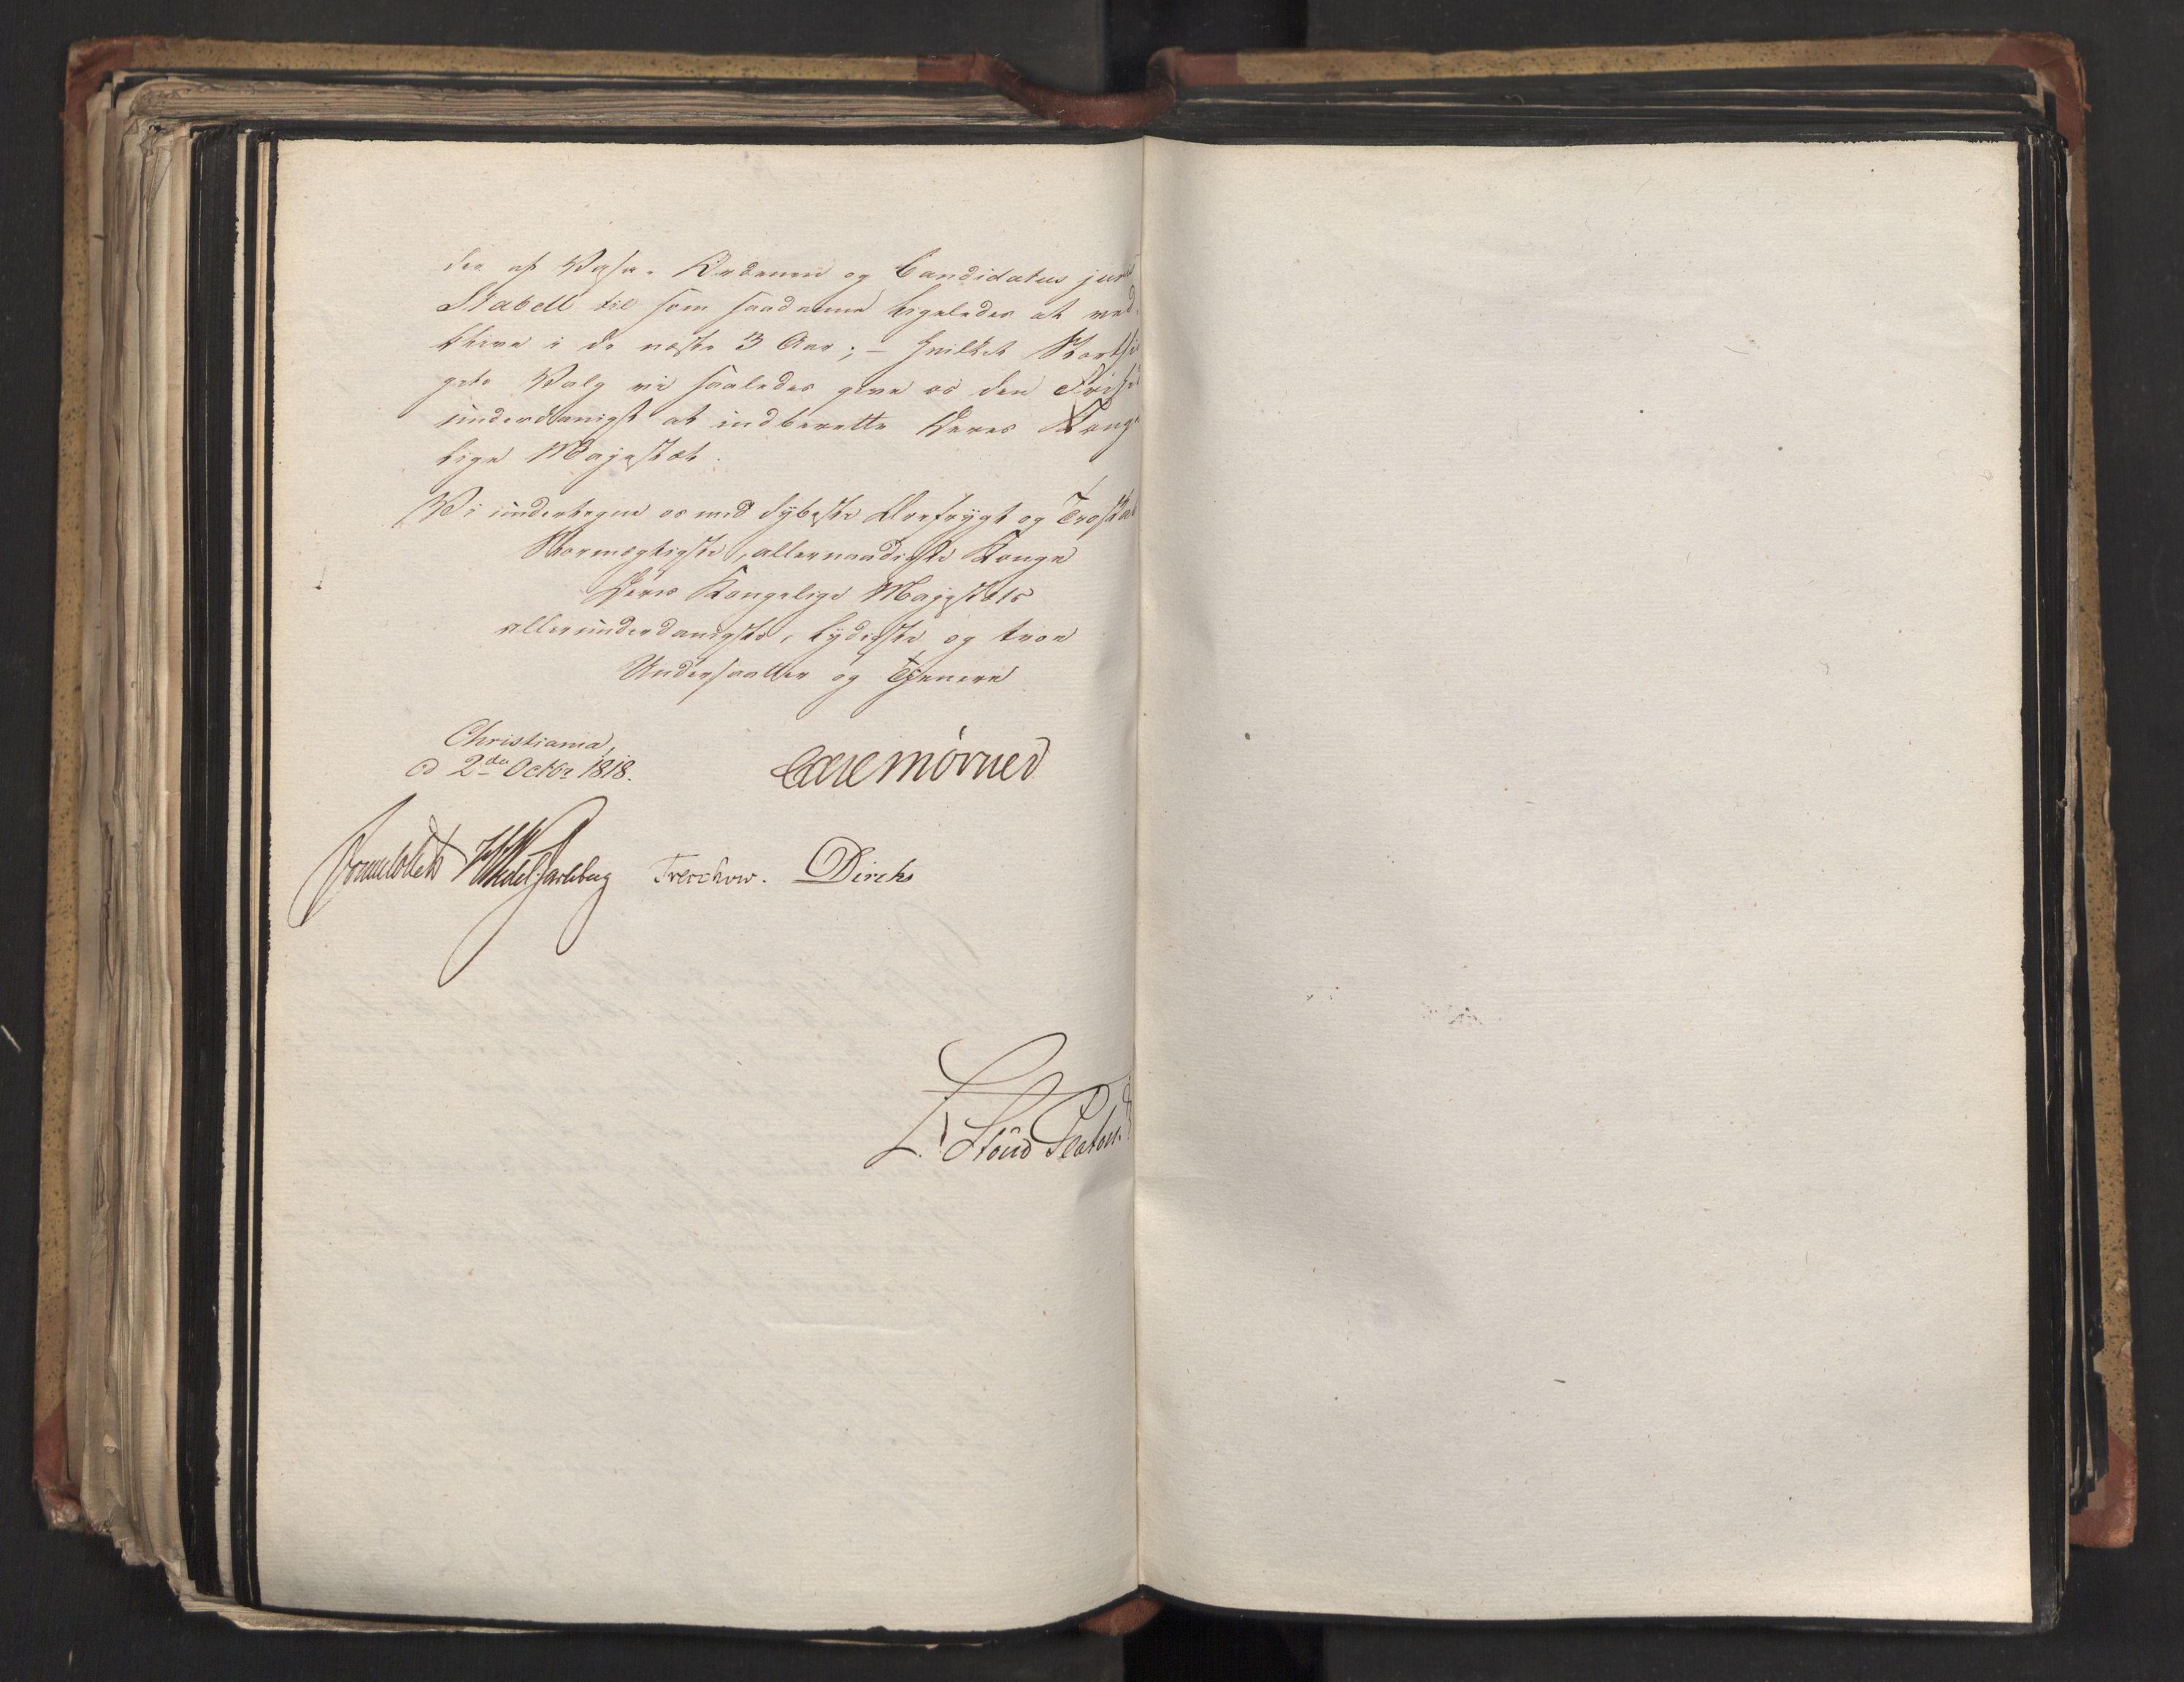 der af Wasa-Ordenen og Candidatus juris
Stabell til som saadanne ligeledes at ved-
blive i de næste 3 Aar; – hvilket Storthin-
gets Valg vi saaledes give os den Frihed
underdanigst at indberette Deres Konge-
lige Majestæt.
Vi undertegne os med dybeste Ærefrygt og Troskab
Stormægtigste, allernaadigste Konge
Deres Kongelige Majestæts
allerunderdanigste, lydigste og troe
Undersaatter og Tjenere
Christiania,
d 2den Octbr 1818.
Carl Mörner
Sommerhielm HWedel Jarlsberg Treschow. Diriks
L. Stoud Platou